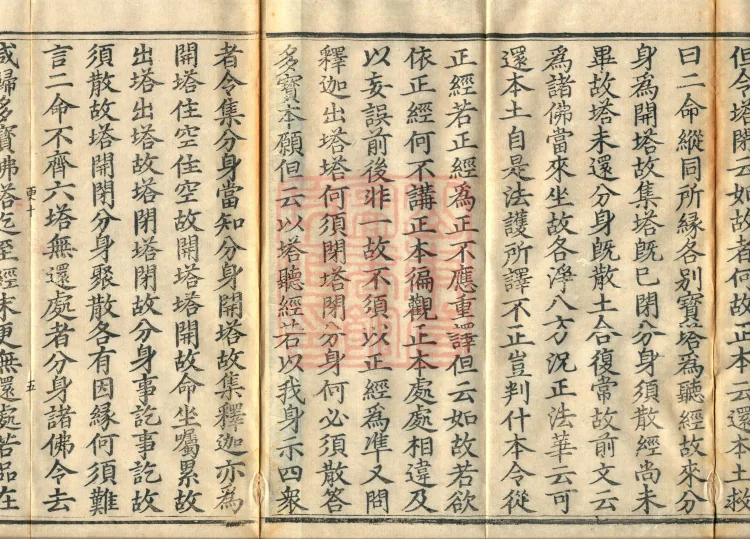 但令塔閉云如故者何故正本云還本土救
曰二命縱同所緣各別寶塔為聽經故來分
身為開塔故集塔既已閉分身須散經尚未
畢故塔未還分身既散土合復常故前文云
為諸佛當來坐故各淨八方況正法華云可
還本土自是法護所譯不正豈判什本令從
正經若正經為正不應重譯但云如故若欲
依正經何不講正本徧觀正本處處相違及
以妄誤前後非一故不須以正經為準又問
釋迦出塔塔何須閉塔閉分身何必須散答
多寶本願但云以塔聽經若以我身示四衆
者令集分身當知分身開塔故集釋迦亦為
開塔住空住空故開塔塔開故命坐囑累故
出塔出塔故塔閉塔閉故分身事訖事訖故
須散故塔開閉分身聚散各有因緣何須難
言二命不齊六塔無還處者分身諸佛令去
更十 五
或歸多寶佛塔迄至經末更無還處若品在